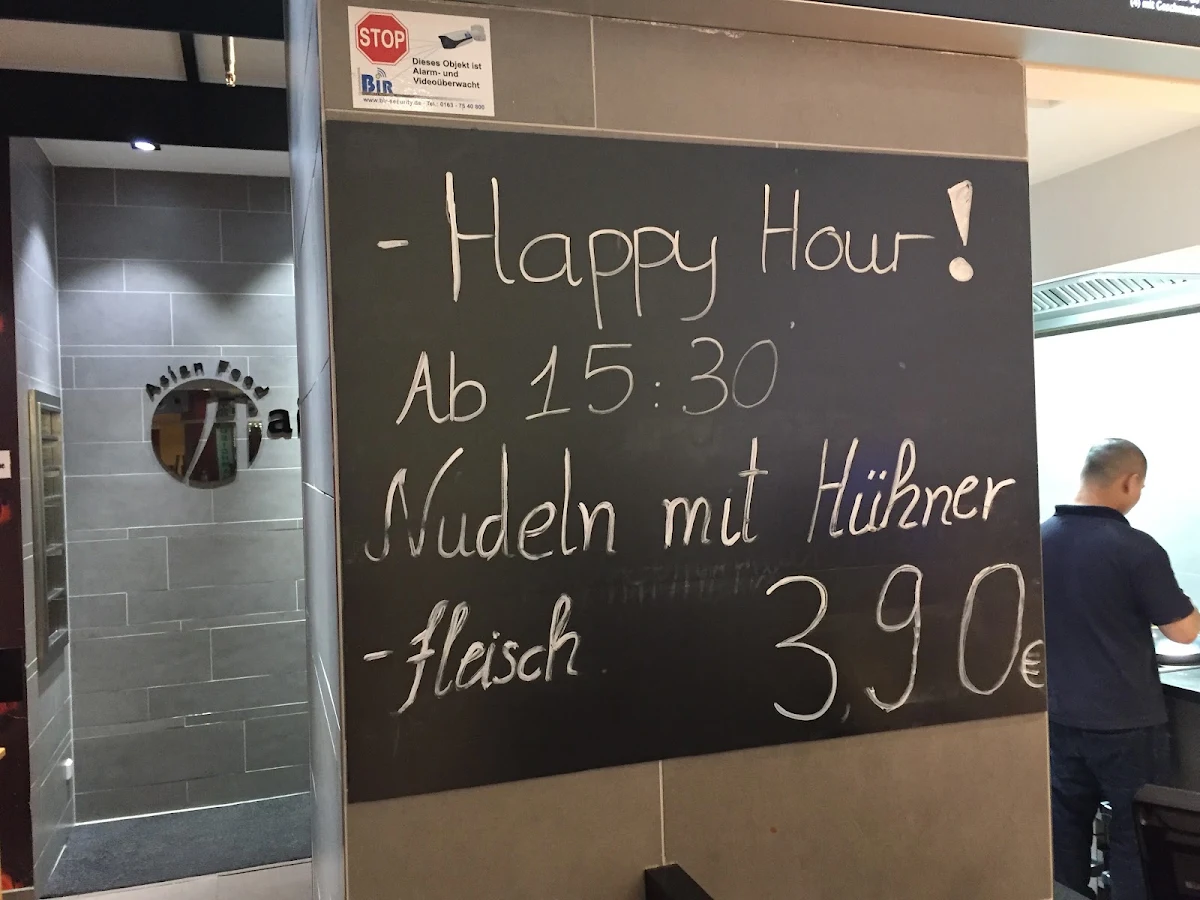 STOP
Dieses Objekt ist
Alarm- und
Videoüberwacht
BIR
www.bir-security.de - Tel.: 0163 - 75 40 800
- Happy Hour!
Ab 15:30
Nudeln mit Hühner
-fleisch
3,90€
Asian Food